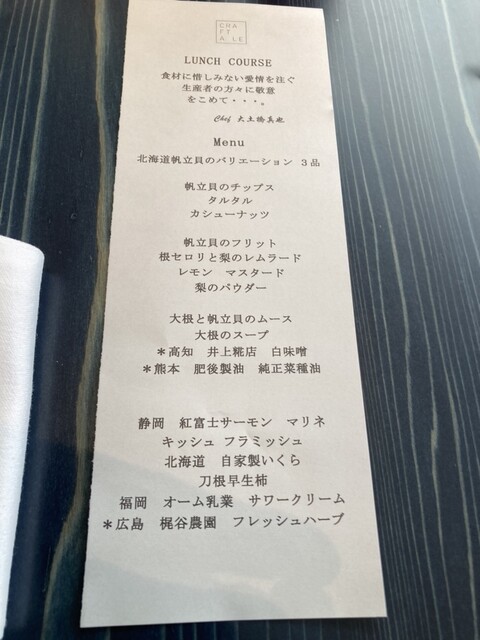 CRA
FT
A LE
LUNCH COURSE
食材に惜しみない愛情を注ぐ
生産者の方々に敬意
をこめて・・・。
Chef 大土橋真也
Menu
北海道帆立貝のバリエーション 3品
帆立貝のチップス
タルタル
カシューナッツ
帆立貝のフリット
根セロリと梨のレムラード
レモン マスタード
梨のパウダー
大根と帆立貝のムース
大根のスープ
＊高知 井上糀店 白味噌
＊熊本 肥後製油 純正菜種油
静岡 紅富士サーモン マリネ
キッシュ フラミッシュ
北海道 自家製いくら
刀根早生柿
福岡 オーム乳業 サワークリーム
＊広島 梶谷農園 フレッシュハーブ